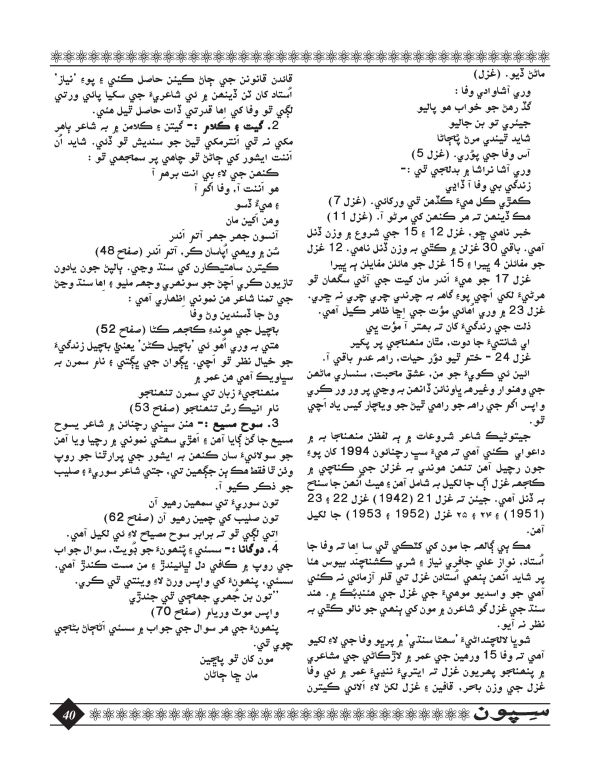 ماڻڻ ڏيو. (غزل)
وري آشاوادي وفا :
گڏ رهڻ جو خواب هو پاليو
جيئري تو بن جاليو
شايد ٿيندي مرڻ پُڄاڻا
آس وفا جي پوُري. (غزل 5)
وري آشا نراشا ۾ بدلاجي ٿي :-
زندگي بي وفا آ ڏاڍي
ڪهڙي ڪل هيءَ ڪڏهن ٿي ورکائي. (غزل 7)
هڪ ڏينهن ته مر ڪنهن کي مرڻو آ. (غزل 11)
خبر ناهي ڇو، غزل 12 ۽ 15 جي شروع ۾ وزن ڏنل
آهي. باقي 30 غزلن ۾ ڪٿي به وزن ڏنل ناهي. 12 غزل
جو مفائلن 4 ڀيرا ۽ 15 غزل جو هائلن مفايلن ٻه ڀيرا
غزل 17 جو هيءَ اَندر مان گيت جي آڻي سگهان ٿو
هرڻيءَ لکي اَچي پوءِ گاهه به چرندي چري چري نه چري.
غزل 23 ۾ وري اُهائي مؤت جي اِڇا ظاهر ڪيل آهي.
ذلت جي زندگيءَ کان ته بهتر آ مؤت ئي
اي شانتيءَ جا دوت، مٿان منهنجاجي پر پکير
غزل 24 – ختم ٿيو دؤر حيات، راهه عدم باقي آ.
ائين ئي ڪويءَ جو من، عشق محبت، سنساري ماڻهن
جي وهنوار وغيره ڀاونائن ڏانهن به وڃي پر ور ور ڪري
واپس اڪم جي راهه جو راهي ٿيڻ جو ويچار ڪيس ياد اَچي
ٿو.
جيتوڻيڪ شاعر شروعات ۾ ٻه لفظن منهنجا به ۾
داعوايِ ڪئي آهي ته هيءَ سڀ رچنائون 1994 کان پوءِ
جون رچيل آهن تنهن هوندي به غزلن جي ڪتاڇي ۾
ڪاڇهه غزل اڳ جا لکيل به شامل آهن ۽ هيٺ اُنهن جا سنَاح
به ڏنل آهي. جيئن ته غزل 21 (1942) غزل 22 ۽ 23
(1951) ۽ ۲۴ ۽ ۲۵ غزل (1952 ۽ 1953) جا لکيل
آهن.
هڪ ٻي ڳالهه جا مون کي کٽڪي ٿي سا اِها ته وفا جا
اُستاد، نواز علي جافري نياز ۽ شري ڪشنچند بيوس هئا
پر شايد اُنهن ٻنهي اُستادن غزل تي قلم آزمائي نه ڪئي
آهي جو واسديو موهيءَ جي غزل جي هنڌبُڪ ۾، هند
سنڌ جي غزل گو شاعرن ۾ مون کي ٻنهي جو نالو ڪٿي به
نظر نه آيو.
شوڀا لالچنداڻيءَ 'سهڻا سنڌي' ۾ پرڀو وفا جي لاءِ لکيو
آهي ته وفا 15 ورهين جي عمر ۾ لاڙڪاڻي جي مشاعري
۾ پنهنجو پهريون غزل ته ايتريءَ ننڍيءَ عمر ۾ ئي وفا
غزل جي وزن باحر، قافين ۽ غزل لکڻ لاءِ اُلائي ڪيترن
قائدن قانونن جي ڄاڻ ڪيئن حاصل ڪئي ۽ پوءِ 'نياز'
اُستاد کان ٽن ڏينهن ۾ ئي شاعريءَ جي سکيا پائي ورتي
لڳي ٿو وفا کي اِها قدرتي ڏات حاصل ٿيل هئي.
2. گيت ۽ ڪلام :- گيتن ۽ ڪلامن ۾ به شاعر ٻاهر
مکي نه ٿي اَنترمکي ٿيڻ جو سنديش ٿو ڏئي. شايد اُن
اَننت ايشور کي ڄاڻڻ ٿو چاهي پر سماجهي ٿو :
ڪنهن جي لاءِ بي انت برهم آ
هو اَننت آ، وفا اگم آ
۽ هيءُ ڏسو
وهن اَکين مان
آنسون جهر جهر آتم اَندر
سُن ۾ ويهي اُپاسان ڪر، آتم اَندر (صفاح 48)
ڪيترن ساهتيڪارن کي سنڌ وڃي. ٻالپڻ جون يادون
تازيون ڪري اَچڻ جو سونهري وجهه مليو ۽ اِها سنڌ وڃڻ
جي تمنا شاعر هن نموني اِظهاري آهي :
وڻ جا ڏسندين وڻ وفا
باچيل جي هوندءِ ڪاڇهه ڪٿا (صفاح 52)
هتي به وري اُهو ئي 'باچيل ڪڻن' يعني باچيل زندگيءَ
جو خيال نظر ٿو اَچي. ڀڳوان جي ڀڳتي ۽ نام سمرن به
سڀاويڪ آهي هن عمر ۾
منهنجيءَ زبان تي سمرن تنهنجو
نام انيڪ رِش تنهنجو (صفاح 53)
3. سوح مسيع :- هنن سيني رچنائن ۾ شاعر يسوح
مسيع جا گڻ ڳايا آهن ۽ اُهڙي سهڻي نموني ۾ رچيا ويا آهن
جو سولائيءَ سان ڪنهن به ايشور جي پرارٿنا جو روپ
وٺن ٿا فقط هڪ ٻن جڳهين تي، جتي شاعر سوريءَ ۽ صليب
جو ذڪر ڪيو آ.
تون سوريءَ تي سمهين رهيو آن
تون صليب کي چمين رهيو آن (صفاح 62)
اِتي لڳي ٿو ته برابر سوح مصياح لاءِ ئي لکيل آهي.
4. دوگانا :- سسئي ۽ پُنهونءَ جو ڀُويٽ، سوال جواب
جي روپ ۾ ڪافي دل لڀائيندڙ ۽ من مست ڪندڙ آهي.
سسئي، پنهونءَ کي واپس ورڻ لاءِ وينتي ٿي ڪري.
”تون بن جُهري جهاڇي ٿي جندڙي
واپس موٽ وريام (صفاح 70)
پنهونءَ جي هر سوال جي جواب ۾ سسئي اَڻڄاڻ بڻجي
چوي ٿي.
مون کان ٿو پاڇين
مان ڇا ڄاڻان
سپون
40